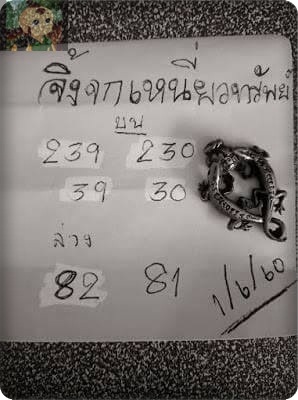 จิ้งจกเหนี่ยวทรัพย์
บน
239 230
39 30
ล่าง
82 81
1/6/60